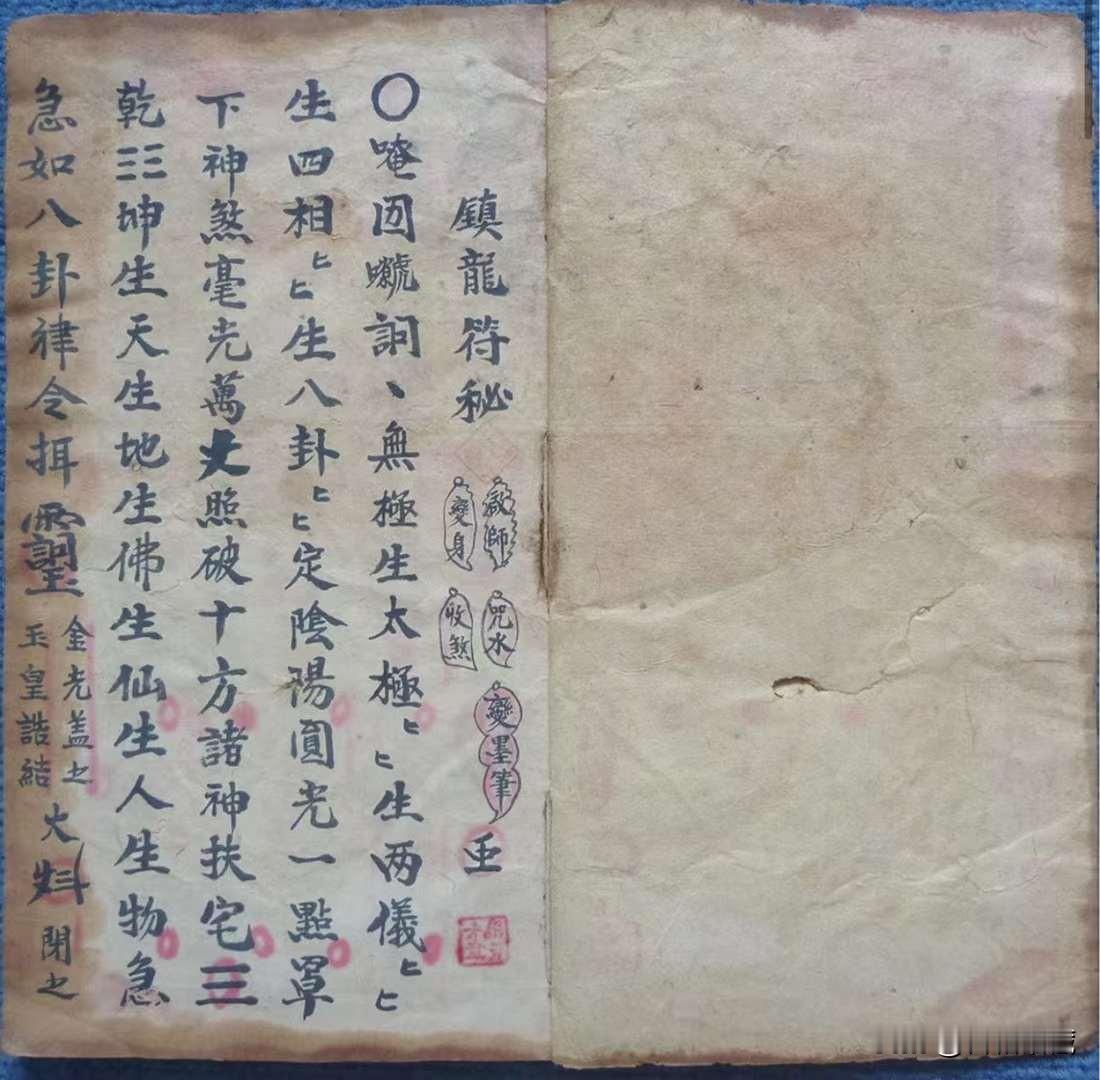 鎮龍符秘
啟師
變身
咒水
收煞
變墨筆
〇唵囙嚈詗、無極生太極〻生两儀〻
生四相〻生八卦〻定陰陽圓光一點罩
下神煞毫光萬丈照破十方諸神扶宅三
乾☷坤生天生地生佛生仙生人生物急
急如八卦律令挕
金光盖之
玉皇誥結
火
閉之